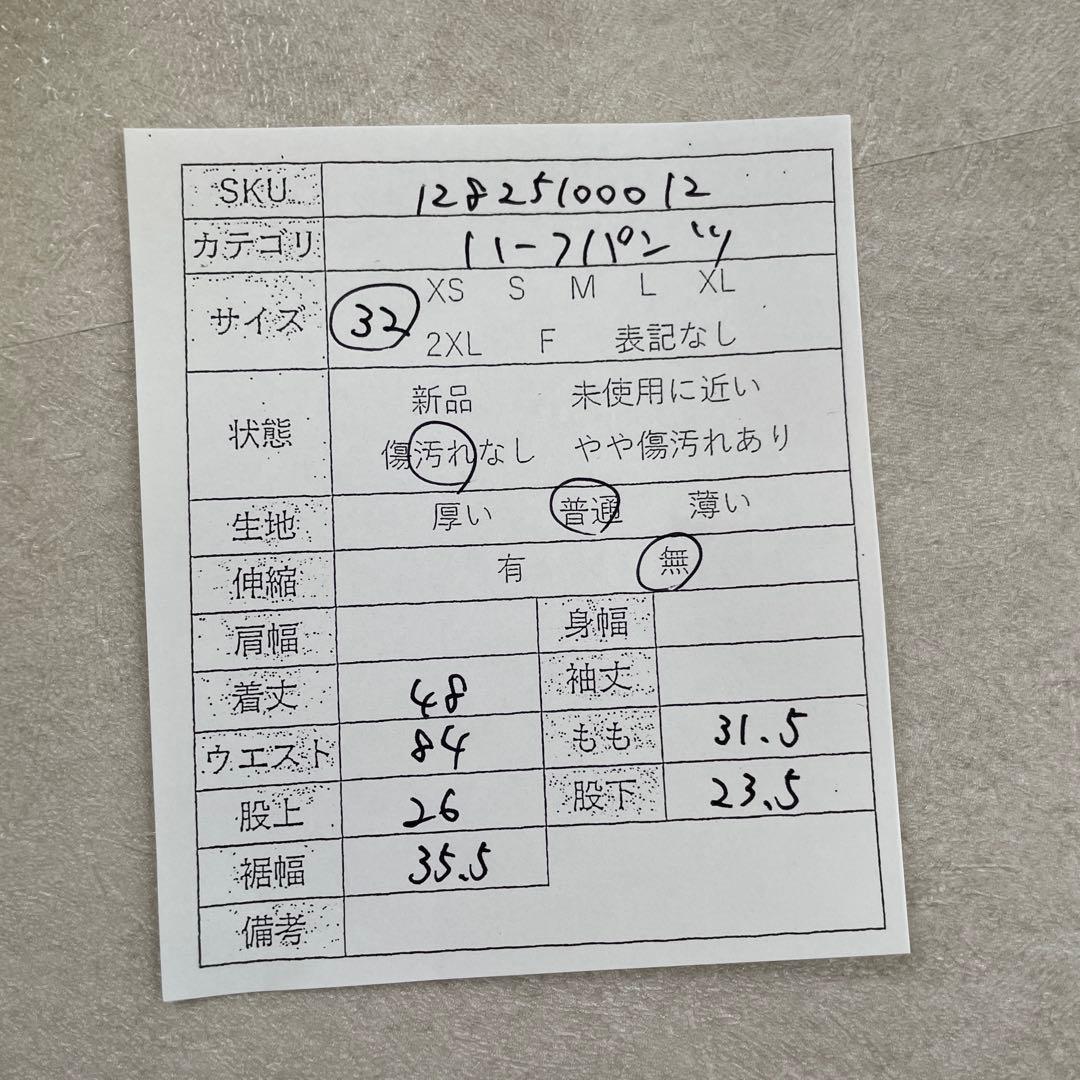 SKU 12825100012
カテゴリ ハーフパンツ
サイズ 32 XS S M L XL
2XL F 表記なし
状態 新品 未使用に近い
傷汚れなし やや傷汚れあり
生地 厚い 普通 薄い
伸縮 有 無
肩幅 身幅
着丈 48 袖丈
ウエスト 84 もも 31.5
股上 26 股下 23.5
裾幅 35.5
備考